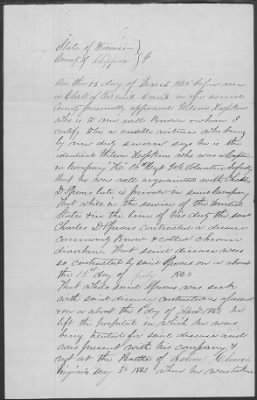 State of Wisconsin
County of Chippewa
On this 15 day of March 1865 before me
a Clerk of Circuit Court in for said
County personally appeared Wilson Hopkins
who is to me well known whom I
certify to be a credible witness who being
by me duly sworn says he is the
identical Wilson Hopkins who was a Captain
in Company
that he was well acquainted with Charles
D Spears late a private in said Company
That while in the service of the United
States in the line of his duty the said
Charles D Spears contracted a disease
commonly known & called chronic
diarrhea. That said disease was
so contracted by said Spears on or about
the 15th day of July 1862
That while said Spears was sick
with said disease contracted as aforesaid
on or about the day of April 1863 he
left the hospital in which he was
being treated for said disease and
was present with his company &
regt at the Battle of
Virginia May 3d 1863 where he was taken